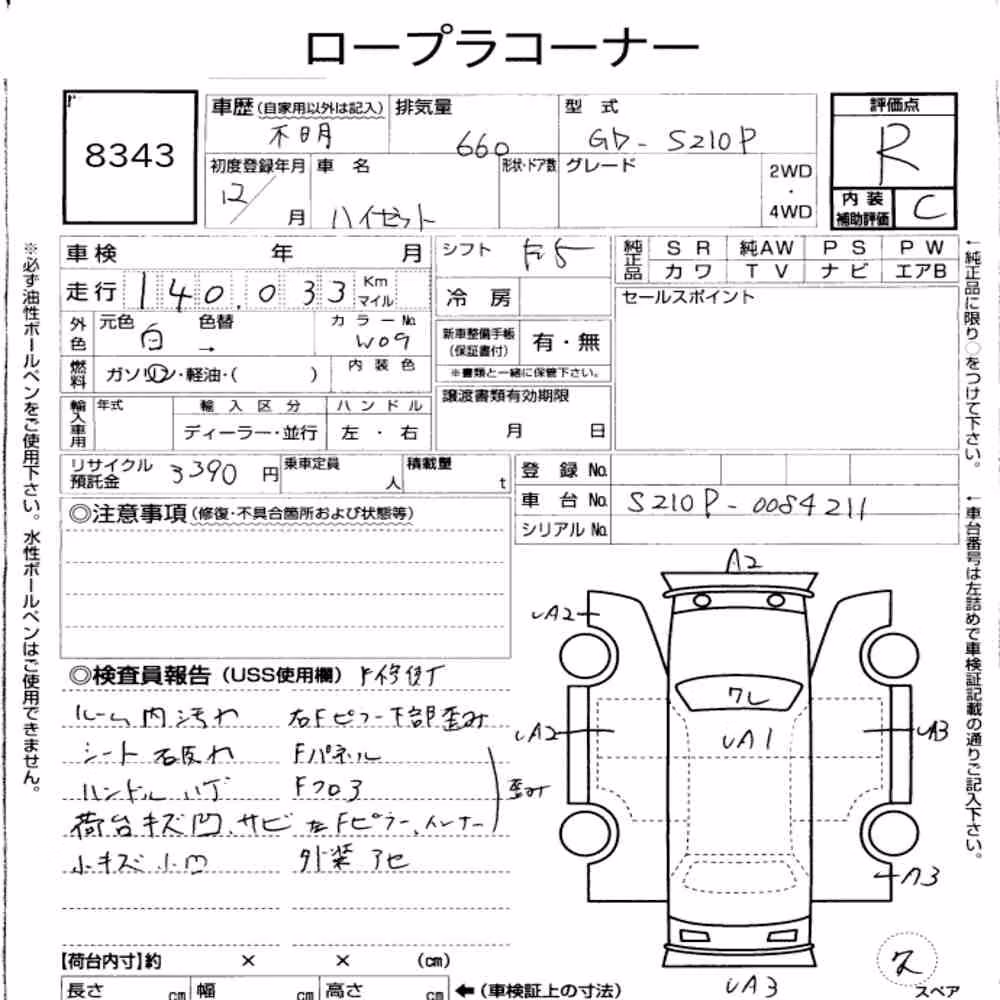 ロープラコーナー
8343
車歴(自家用以外は記入) 不明
排気量 660
型 式 GD-S210P
評価点 R
初度登録年月 12/ 月
車 名 ハイゼット
形状・ドア数
グレード
2WD
・
4WD
内装補助評価 C
※必ず油性ボールペンをご使用下さい。水性ボールペンはご使用できません。
車検 年 月
シフト F5
純正品 SR 純AW PS PW
カワ TV ナビ エアB
走行 140.033 Km マイル
冷 房
セールスポイント
←純正品に限り○をつけて下さい。
外色 元色 白 色替 → カラーNo. W09
新車整備手帳(保証書付) 有・無
※書類と一緒に保管下さい。
燃料 ガソリン・軽油・( )
内装色
譲渡書類有効期限
月 日
輸入車用 年式 輸入区分 ハンドル
ディーラー・並行 左・右
リサイクル預託金 3390円
乗車定員 人
積載量 t
登 録 No.
車 台 No. S210P-0084211
シリアル No.
←車台番号は左詰めで車検証記載の通りご記入下さい。
◎注意事項(修復・不具合箇所および状態等)
◎検査員報告(USS使用欄)
ルーム内汚れ 右Fピラー下部歪み
シート Fパネル
ハンドル Fフロア
歪み
荷台キズ凹、サビ 左Fピラー、インナー
小キズ小凹 外装アセ
A2
UA2
ワレ
UA2
UA1
UA3
A3
UA3
スペア
【荷台内寸】約 × × (cm)
長さ cm 幅 cm 高さ cm ←(車検証上の寸法)